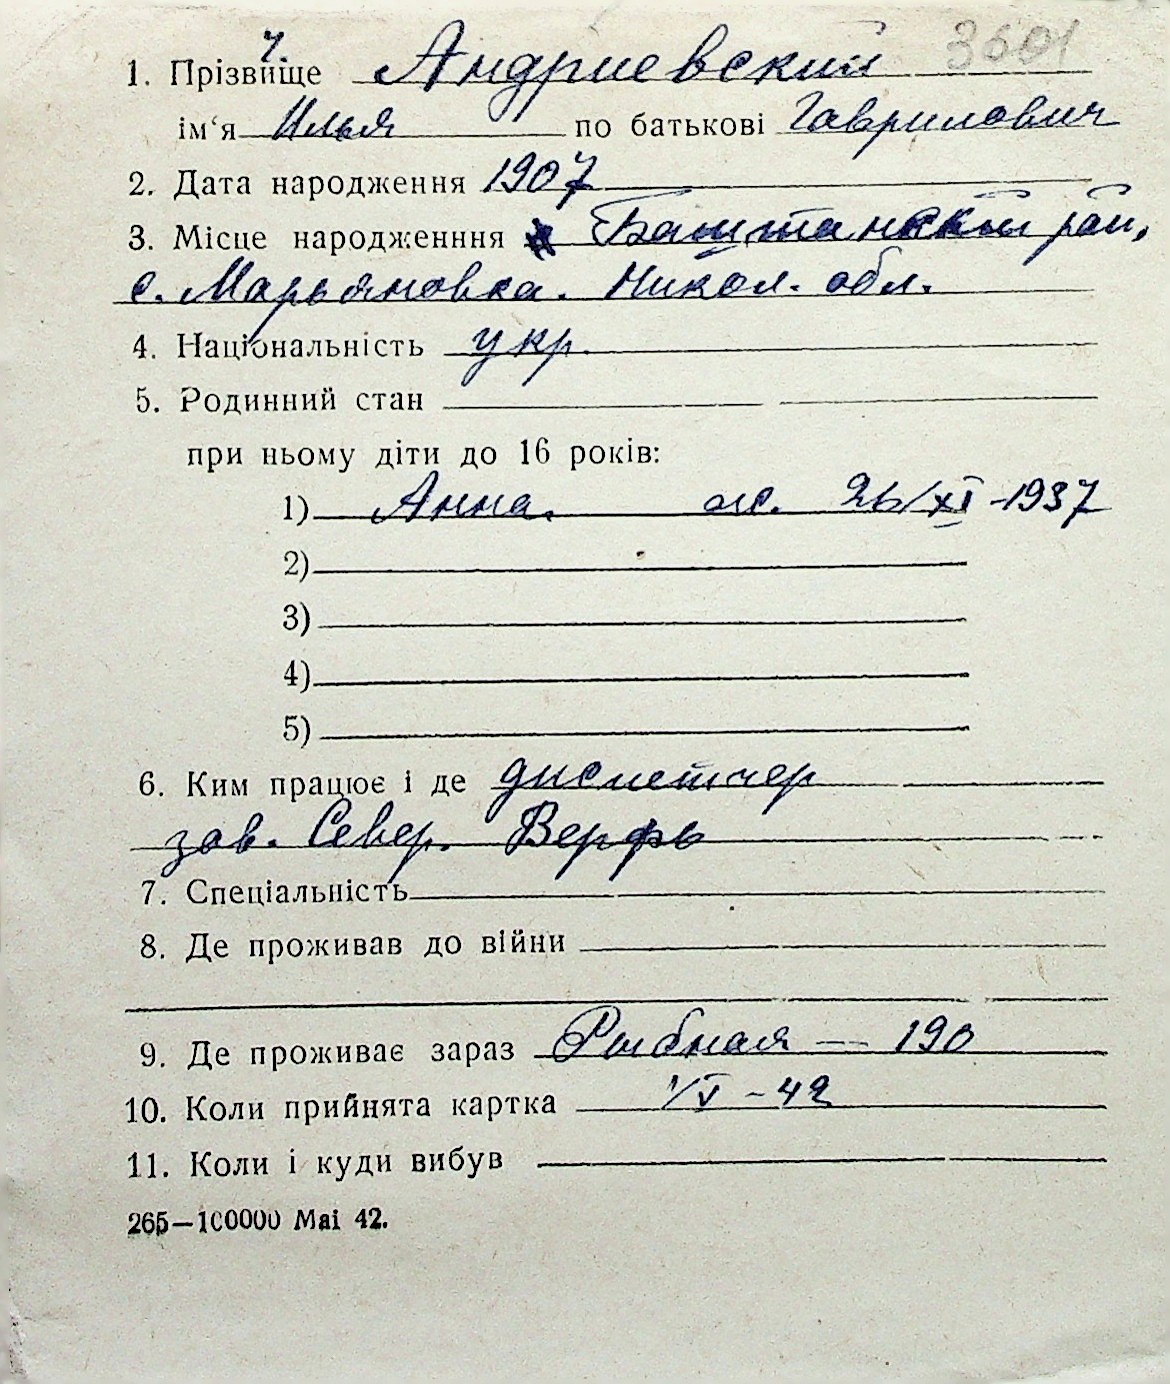 ч. 3601
1. Прізвище Андриевский
ім‘я Илья по батькові Гаврилович
2. Дата народження 1907
3. Місце народженння Баштанский рай,
с. Марьяновка. Никол. обл.
4. Національність укр.
5. Родинний стан
при ньому діти до 16 років:
1) Анна. ж. 26/XI-1937
2)
3)
4)
5)
6. Ким працює і де диспетчер
зав. Север. Верфь
7. Спеціальність
8. Де проживав до війни
9. Де проживає зараз Рыбная — 190
10. Коли прийнята картка 1/V-42
11. Коли і куди вибув
265—100000 Mai 42.